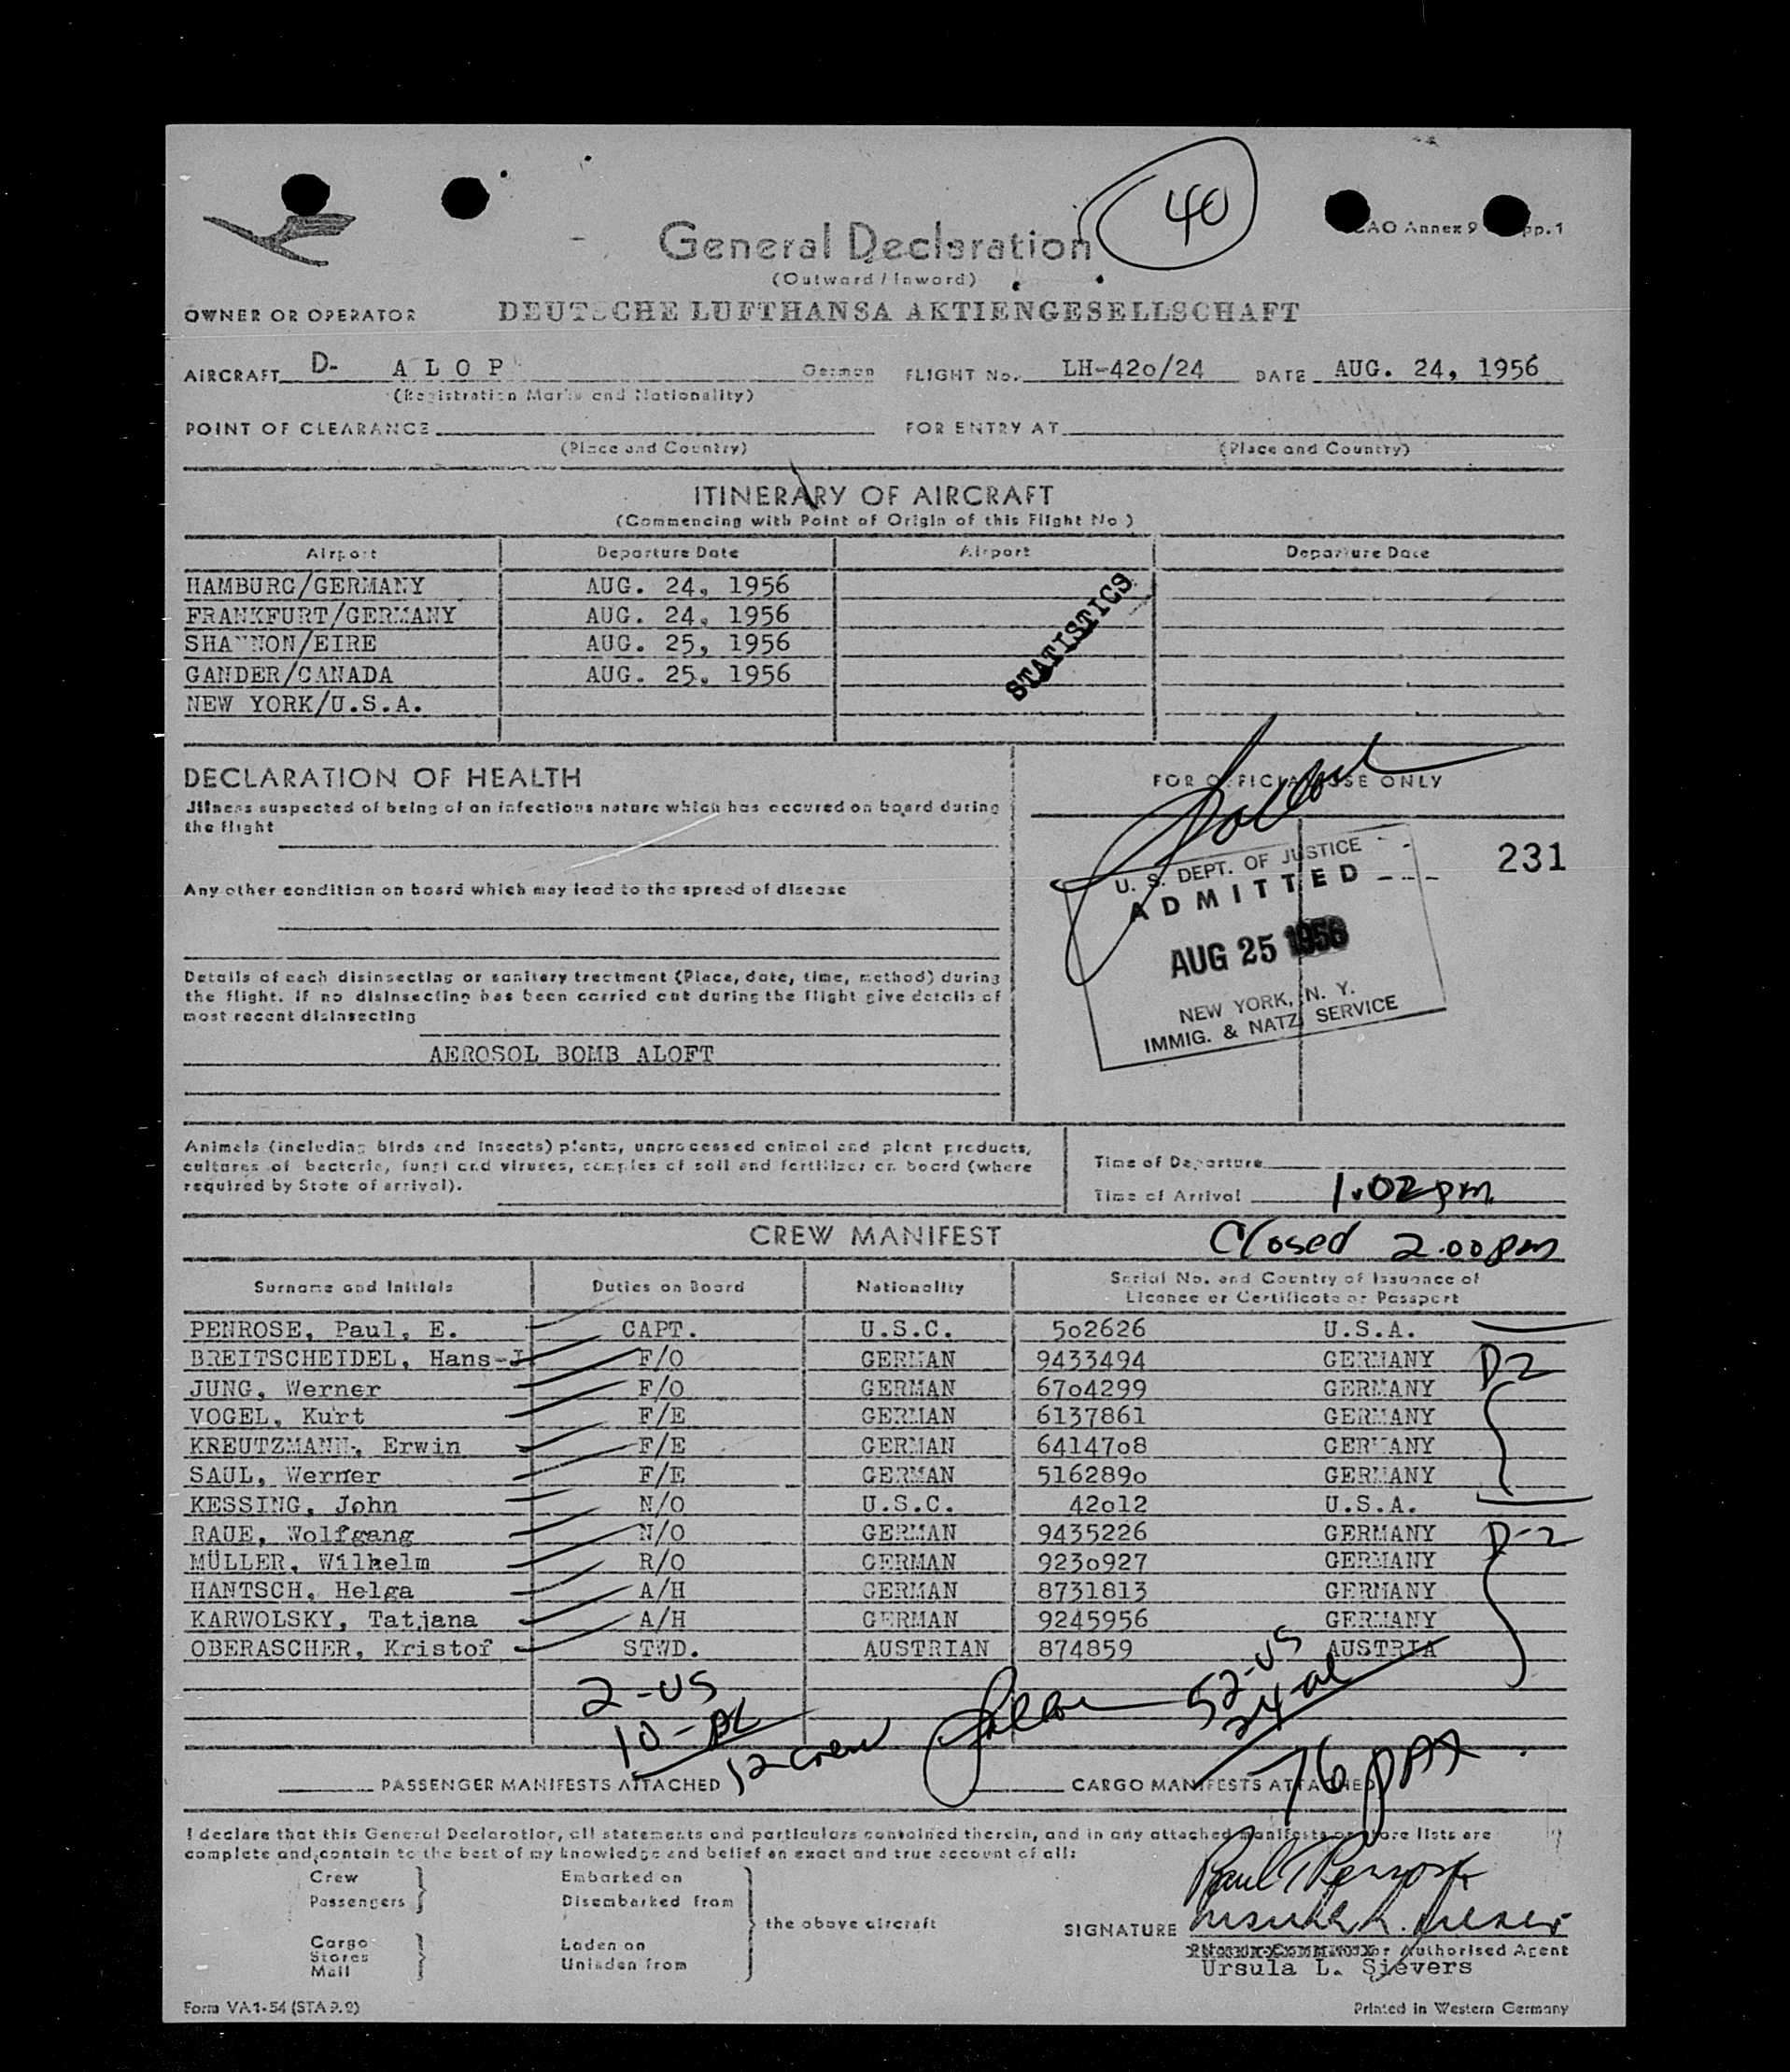 40
ICAO Annex 9 App. 1
General Declaration
(Outward / Inward)
OWNER OR OPERATOR DEUTSCHE LUFTHANSA AKTIENGESELLSCHAFT
AIRCRAFT D- A L O P German FLIGHT No. LH-42o/24 DATE AUG. 24, 1956
(Registration Marks and Nationality)
POINT OF CLEARANCE FOR ENTRY AT
(Place and Country) (Place and Country)
ITINERARY OF AIRCRAFT
(Commencing with Point of Origin of this Flight No.)
Airport Departure Date Airport Departure Date
HAMBURG/GERMANY AUG. 24, 1956
FRANKFURT/GERMANY AUG. 24, 1956
SHANNON/EIRE AUG. 25, 1956
GANDER/CANADA AUG. 25, 1956
NEW YORK/U.S.A.
STATISTICS
DECLARATION OF HEALTH
FOR OFFICIAL USE ONLY
Jllness suspected of being of an infectious nature which has occured on board during
the flight
231
U. S. DEPT. OF JUSTICE
ADMITTED
AUG 25 1956
NEW YORK, N. Y.
IMMIG. & NATZ. SERVICE
Any other condition on board which may lead to the spread of disease
Details of each disinsecting or sanitary treatment (Place, date, time, method) during
the flight. If no disinsecting has been carried out during the flight give details of
most recent disinsecting
AEROSOL BOMB ALOFT
Animals (including birds and insects) plants, unprocessed animal and plant products,
cultures of bacteria, fungi and viruses, samples of soil and fertilizer on board (where
required by State of arrival).
Time of Departure
Time of Arrival 1.02 pm
CREW MANIFEST
Closed 2.00 pm
Surname and Initials Duties on Board Nationality Serial No. and Country of Issuance of
Licence or Certificate or Passport
PENROSE, Paul, E. CAPT. U.S.C. 5o2626 U.S.A.
BREITSCHEIDEL, Hans-J. F/O GERMAN 9433494 GERMANY D2
JUNG, Werner F/O GERMAN 67o4299 GERMANY
VOGEL, Kurt F/E GERMAN 6137861 GERMANY
KREUTZMANN, Erwin F/E GERMAN 64147o8 GERMANY
SAUL, Werner F/E GERMAN 516289o GERMANY
KESSING, John N/O U.S.C. 42o12 U.S.A.
RAUE, Wolfgang N/O GERMAN 9435226 GERMANY D-2
MÜLLER, Wilhelm R/O GERMAN 923o927 GERMANY
HANTSCH, Helga A/H GERMAN 8731813 GERMANY
KARWOLSKY, Tatjana A/H GERMAN 9245956 GERMANY
OBERASCHER, Kristof STWD. AUSTRIAN 874859 AUSTRIA
2-US
10-AL
12 crew
52-US
24-al
76 pax
PASSENGER MANIFESTS ATTACHED CARGO MANIFESTS ATTACHED
I declare that this General Declaration, all statements and particulars contained therein, and in any attached manifests or store lists are
complete and contain to the best of my knowledge and belief an exact and true account of all:
Crew Embarked on
Passengers Disembarked from
the above aircraft
Cargo Laden on
Stores Unladen from
Mail
Paul E Penrose
SIGNATURE Ursula L. Sievers
Authorised Agent
Ursula L. Sievers
Form VA1-54 (STA 9.2) Printed in Western Germany